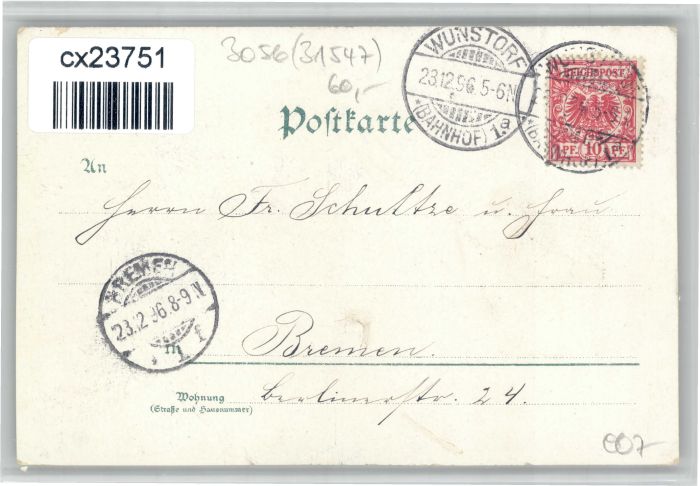 cx23751
3056 (31547)
60,-
WUNSTORF
23.12.96 5-6N
*(BAHNHOF) 1.a
REICHSPOST
PF. 10 PF.
Postkarte
An
Herrn Fr. Schultze u. Frau
BREMEN
23.12.96.8-9N
* 1 f
in
Bremen.
Wohnung
(Straße und Hausnummer)
Berlinerstr. 24.